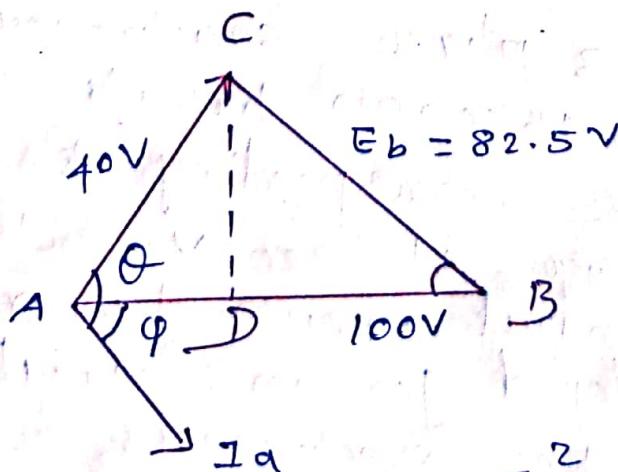 C
40V
Eb = 82.5 V
θ
A
φ
D
100V
B
Ia
2